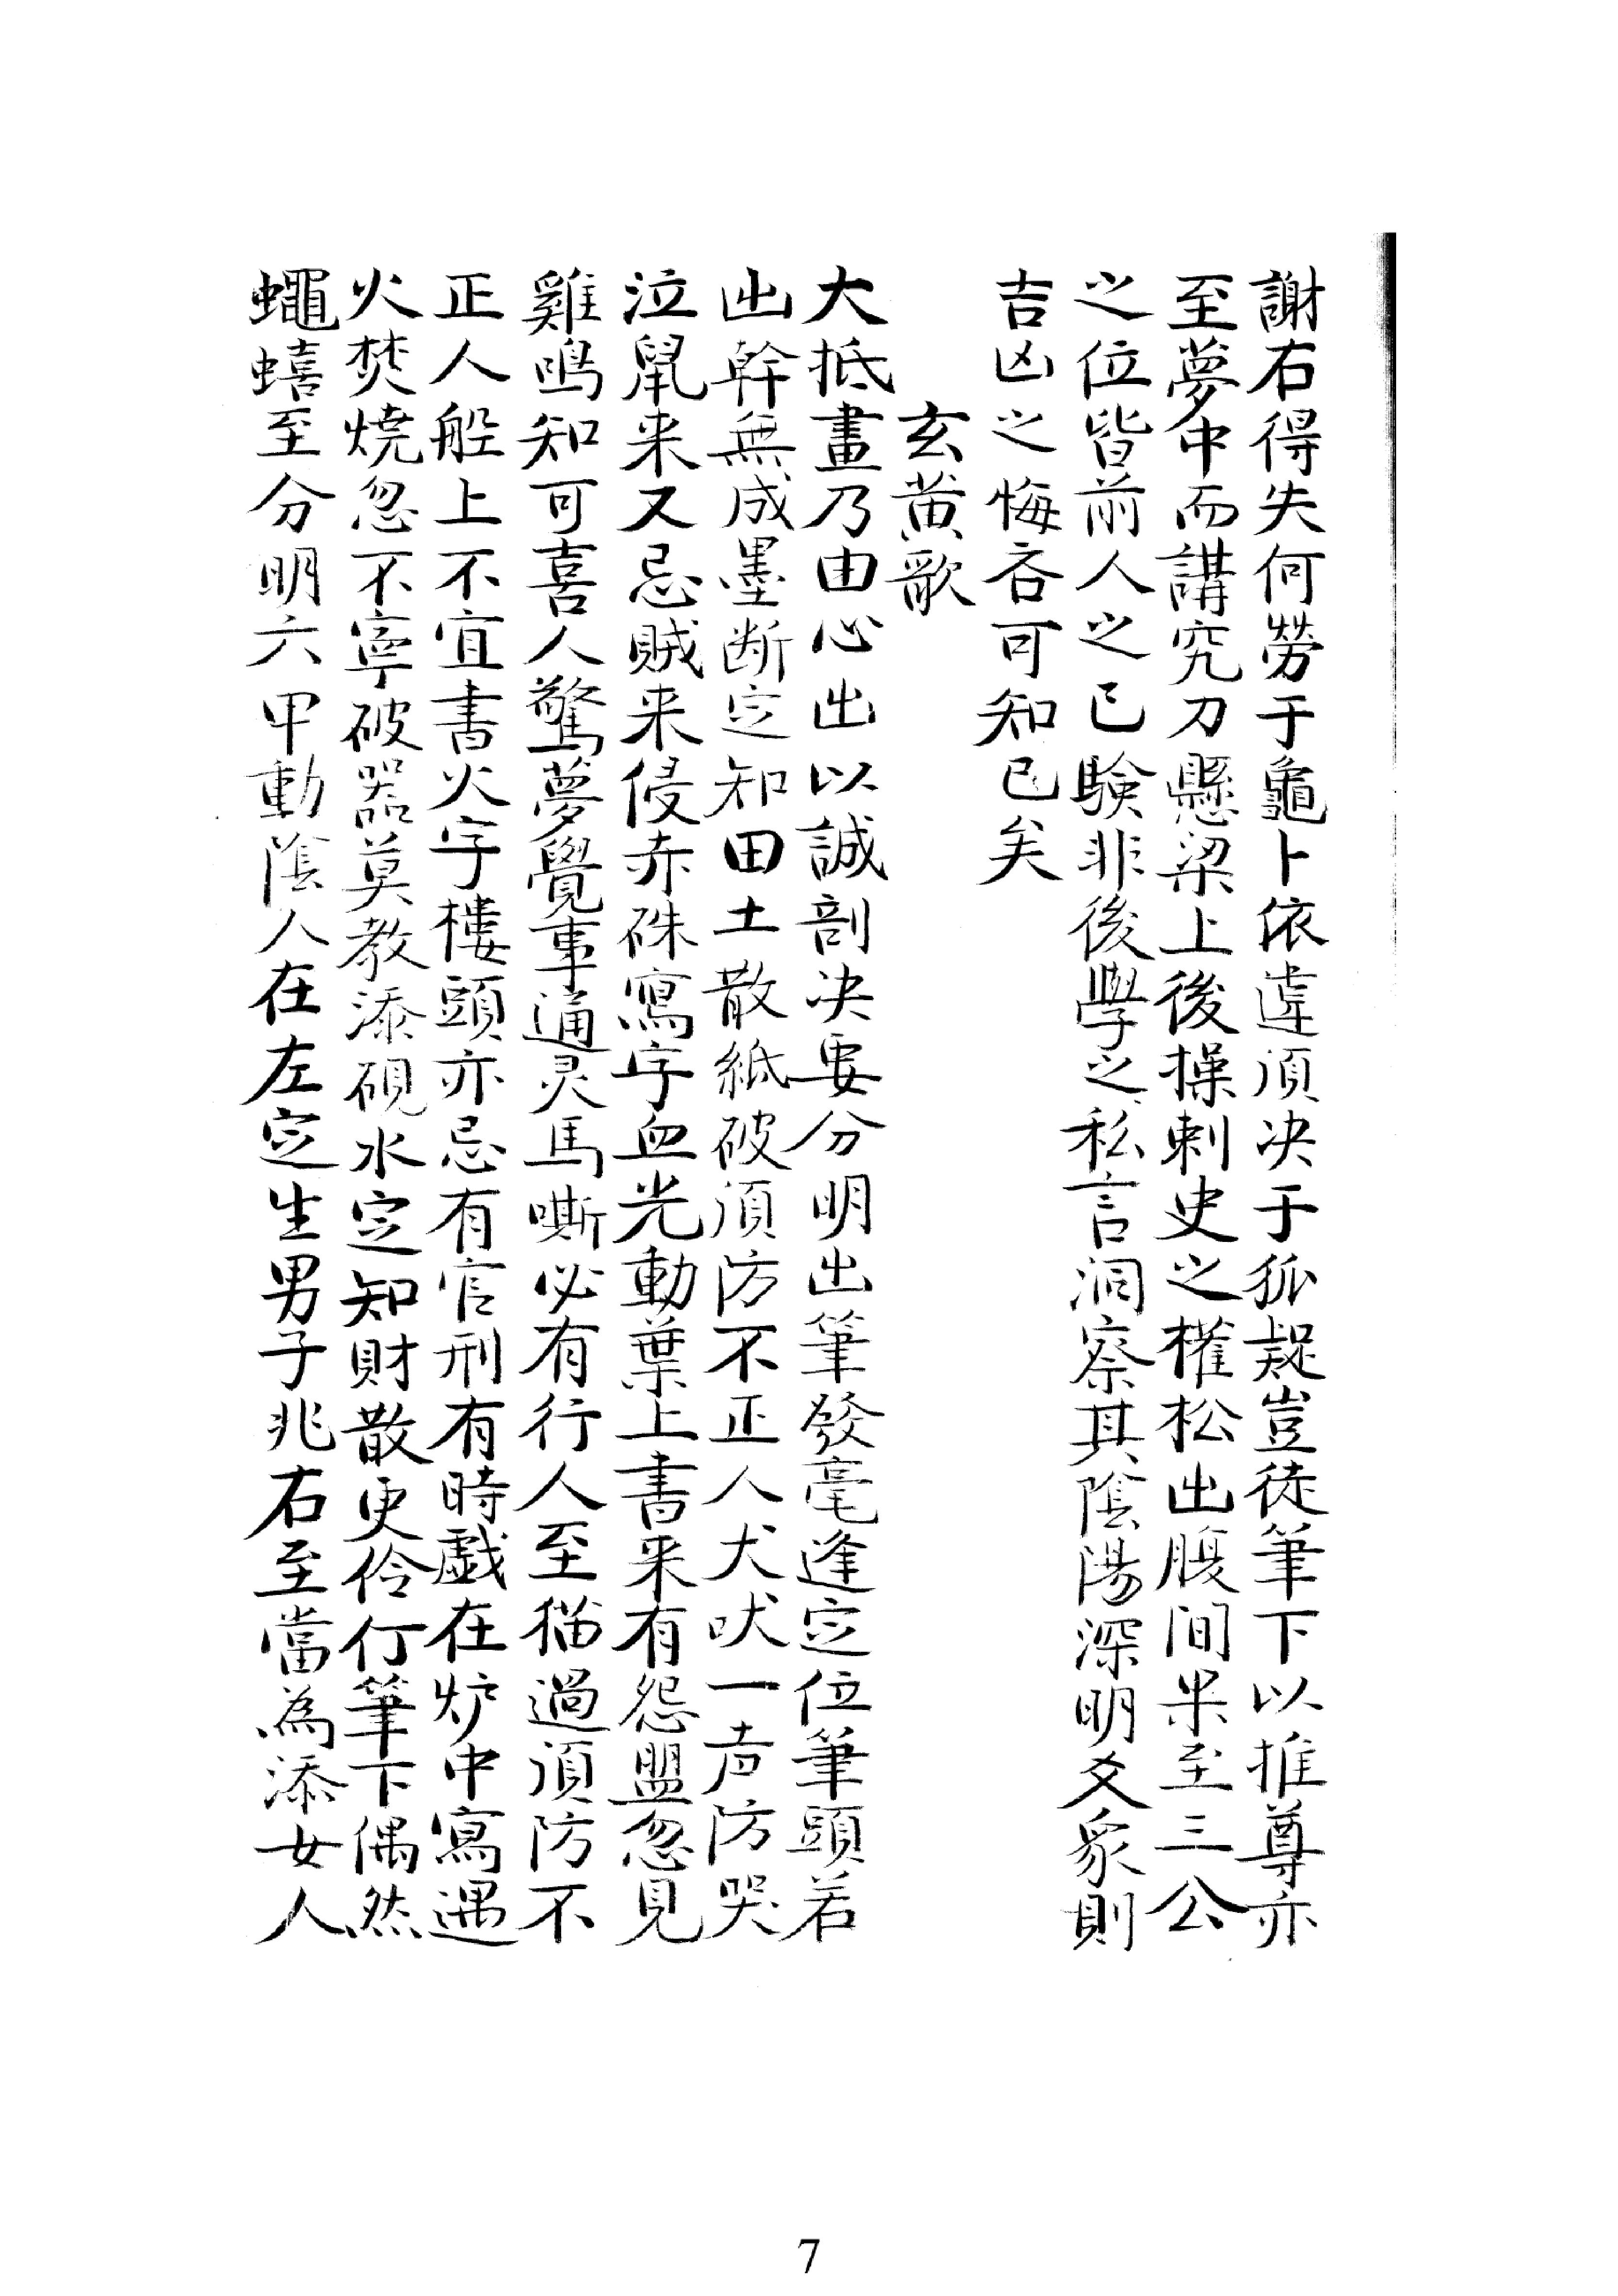 謝右得失何勞于龜卜依違湏决于狐疑豈徒筆下以推尊亦
至夢中而講究刀懸梁上後操刺史之權松出腹间果至三公
之位皆前人之已驗非後學之私言洞察其陰陽深明爻象則
吉凶之悔吝可知已矣
玄黄歌
大抵畫乃由心出以誠剖决要分明出筆發毫逢定位筆頭若
出幹無成墨断定知田土散紙破湏防不正人犬吠一声防哭
泣鼠来又忌賊来侵赤硃寫字血光動葉上書来有怨盟忽見
雞鳴知可喜人驚夢覺事通灵馬嘶必有行人至猫過湏防不
正人船上不宜書火字樓頭亦忌有官刑有時戯在炉中寫遇
火焚燒忽不寧破器莫教添硯水定知財散更伶仃筆下偶然
蠅蟢至分明六甲動陰人在左定生男子兆右至當為添女人
7